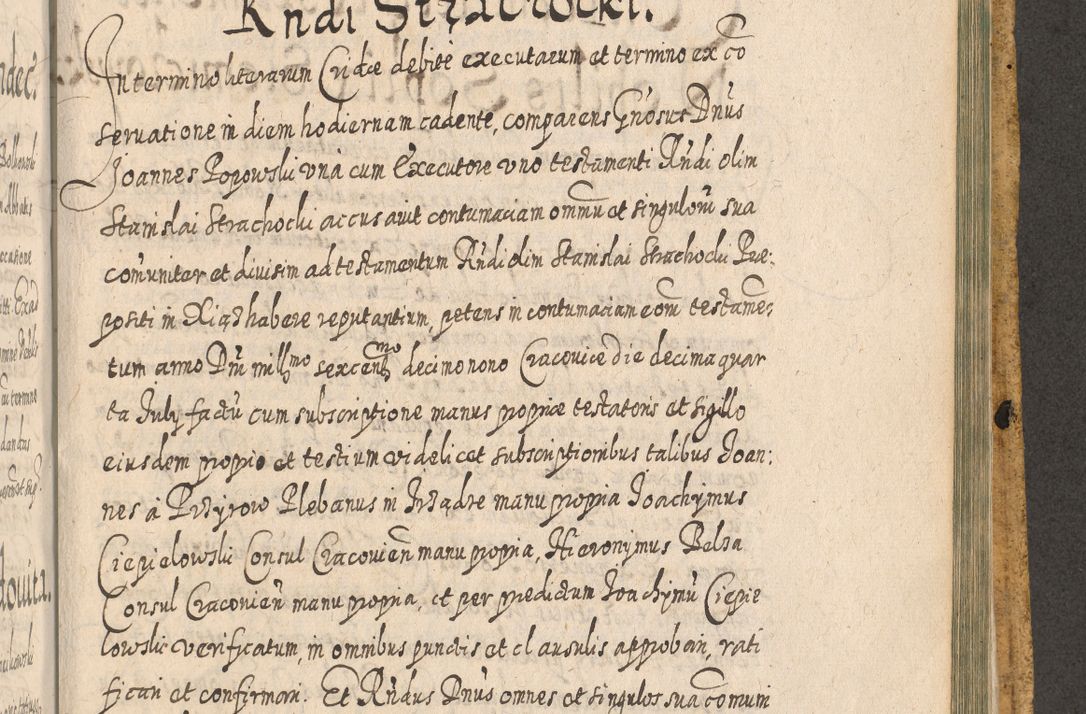 Rndi Strachocki.
In termino literarum Cridae debite executarum et termino ex co
seruatione in diem hodiernam cadente, comparens Gnosus Dnus
Joannes Popowski vna cum Executore vno testamenti Rndi olim
Stanislai Strachocki accusauit contumaciam omniu et singuloru sua
comuniter et diuisim ad testamentum Rndi olim Stanislai Strachocki Prae:
positi in Xiąż habere reputantium, petens in contumaciam eoru testame:
tum anno Dni millmo sexcenmo decimonono Cracouiae die decima quar
ta July factu cum subscriptione manus propriae testatoris et sigillo
eiusdem proprio et testium videlicet subscriptionibus talibus Joan:
nes à Plebanus in manu propria Joachymus
Ciepielowski Consul Cracouien manu propria, Hieronymus Belza
Consul Cracouien manu propria, et per predictum Joachymu Ciepie
lowski verificatum, in omnibus punctis et clausulis approbari, rati
ficari et confirmari. Et Rndus Dnus omnes et singulos sua comuni
ndec.